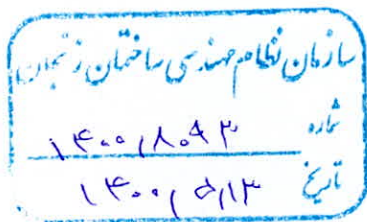 سازمان نظام مهندسی ساختمان زنجان
شماره ۱۴۰۰,۸۰۹۳
تاریخ ۱۴۰۰,۵,۱۳